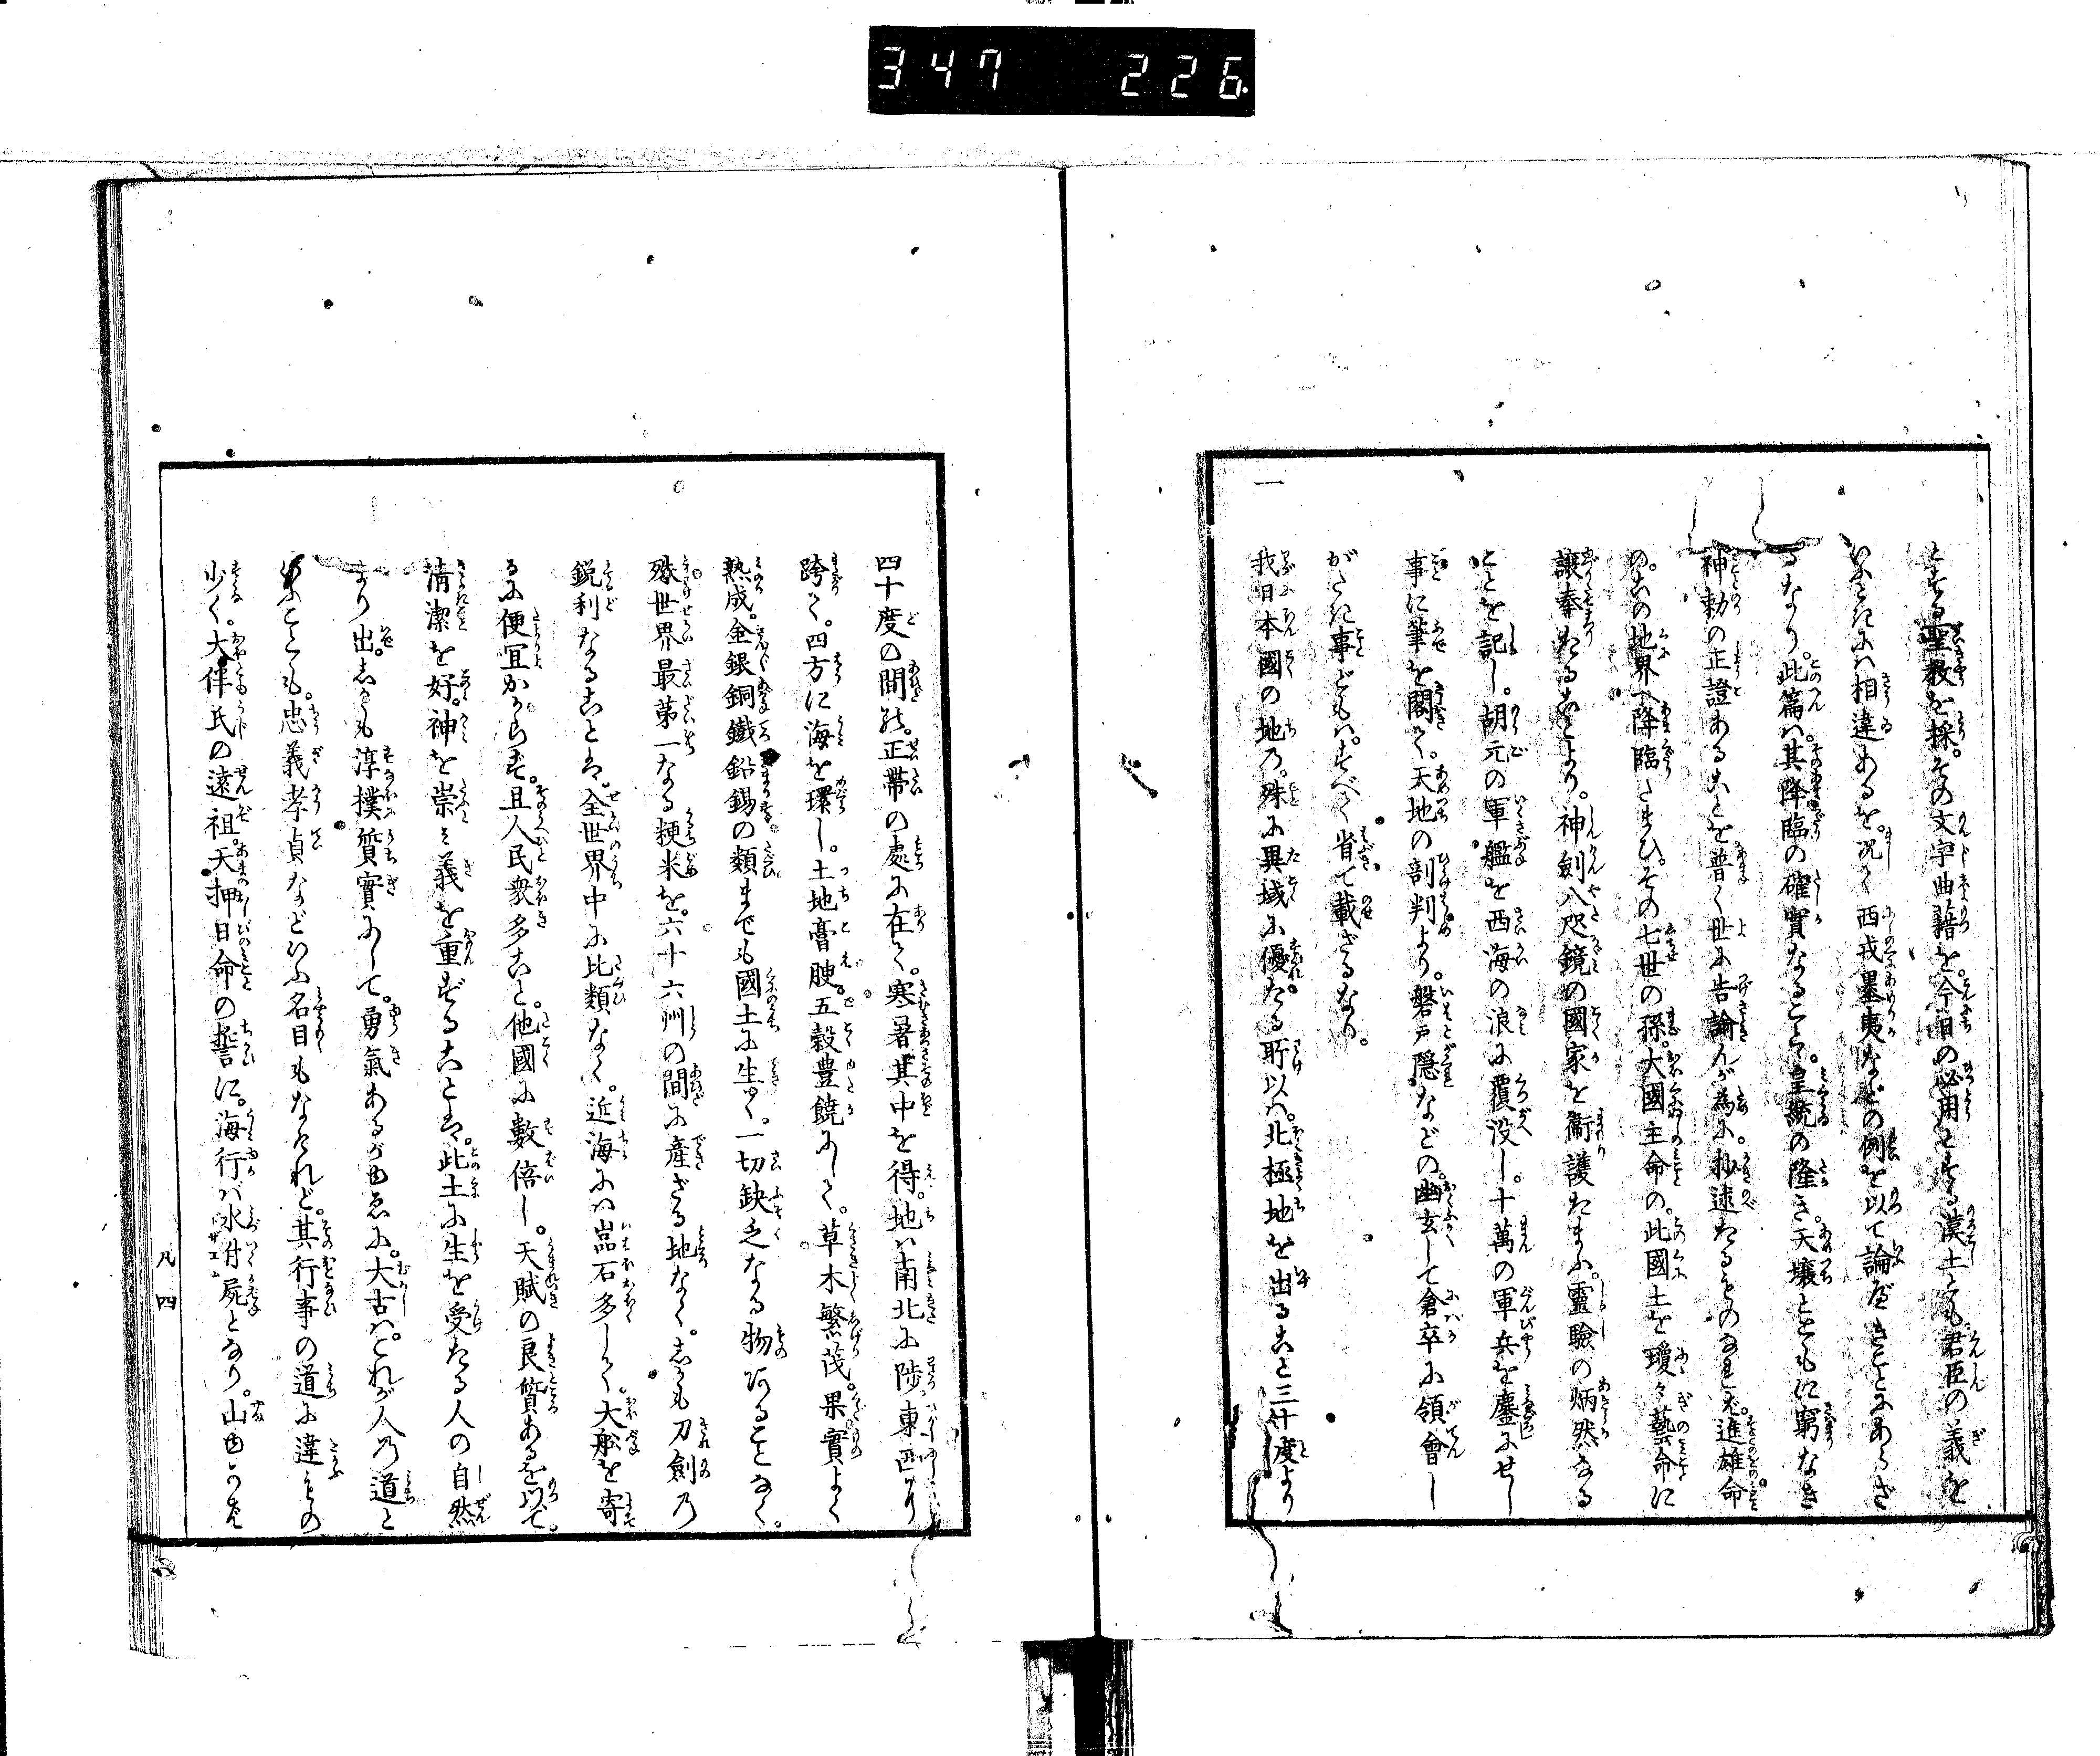 347 226
とする聖教を採。その文字典籍を。今日の必用とする漢土とても君臣の義を
いふときにハ相違あるを。况て西戎墨夷などの例を以て論ずべきことにあらざ
るなり。此篇ハ。其降臨の確實なること。皇統の隆き。天壤とともに窮なき
神勅の正證あることを普く世に告諭んが為に。抄述たるものなれバ。進雄命
の。この地界へ降臨たまひ。その七世の孫。大國主命の。此國土を瓊々藝命に
讓奉たることより。神劍八咫鏡の國家を衞護たまふ。靈驗の炳然なる
ことを記し。胡元の軍艦を西海の浪に覆没し。十萬の軍兵を鏖にせし
事に筆を閣て。天地の剖判より。磐戸隱などの。幽玄して倉卒に領會し
がたき事どもハ。すべて省て載ざるなり。
一 我日本國の地乃。殊に異域に優たる所以ハ。北極地を出ること三十度より
四十度の間を。正帶の處に在て。寒暑其中を得。地ハ南北に陟東西に
跨て。四方に海を環し。土地膏腴。五穀豊饒にして。草木繁茂。果實よく
熟成。金銀銅鐵鉛錫の類までも國土に生て。一切缺乏なる物あることなく。
殊世界最第一なる粳米を。六十六州の間に産ざる地なく。しかも刀劍乃
鋭利なることは。全世界中に比類なく。近海にハ嵓石多して。大舩を寄
るに便宜からず。且人民衆多こと。他國に數倍し。天賦の良質あるを以て。
清潔を好。神を崇ミ義を重ずることは。此土に生を受たる人の自然
より出。しかも淳撲質實にして。勇氣あるがゆゑに。大古ハ。これが人乃道と
いふことも。忠義孝貞などいふ名目もなけれど。其行事の道に違もの
少く。大伴氏の遠祖。天押日命の誓に。海行バ水付屍となり。山ゆかバ
凡 四